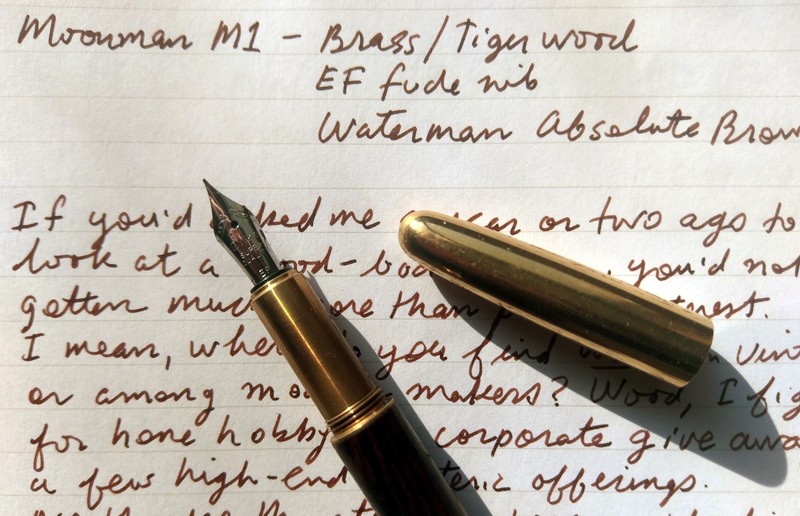 Moonman M1 - Brass/Tiger wood
EF fude nib
Waterman Absolute Brow
If you'd ked me ear or two ago to
look at a ood-bod , you'd not
gotten much ore than p terest.
I mean, where do you find in vint
or among mo makers? Wood, I fig
for home hobby corporate give awa
a few high-end teric offerings.